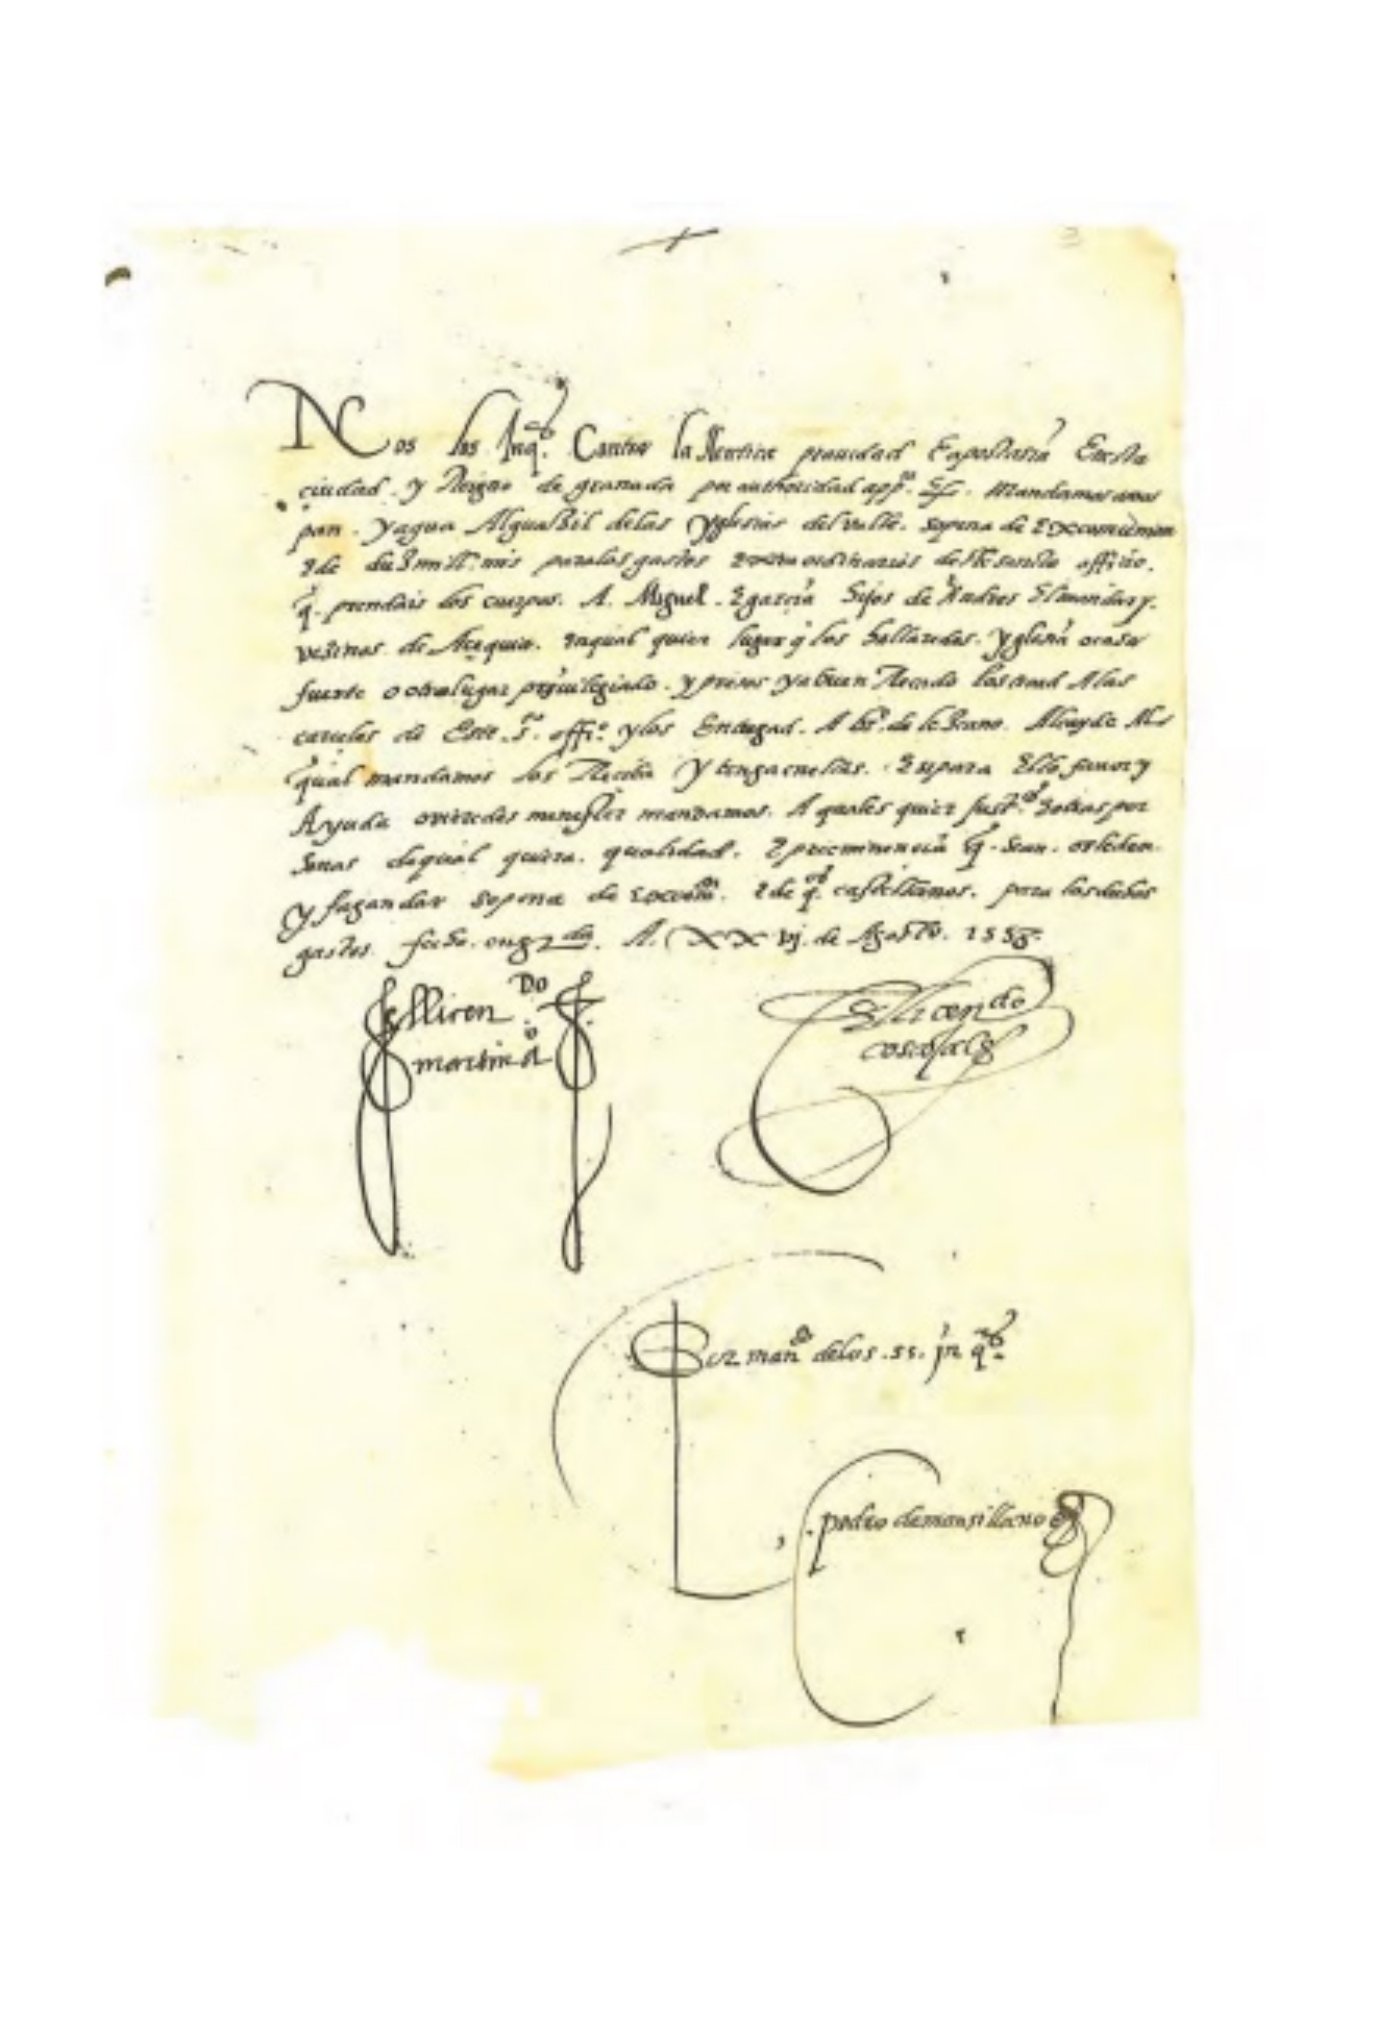 Nos los Inq.es Contra la heretica prauidad E apostasia En esta
ciudad . y Reigno de granada por authoridad app.ca &c. Mandamos a uos
pan . y agua Alguazil de las yglesias del valle . so pena de Excomunion
E de diez mill mrs para los gastos Extraordinarios deste sancto officio .
q. prendais los cuerpos . A . Miguel . E garcia hijos de Andres El mandary .
vezinos de Acequia . En qual quier lugar q los hallaredes . yglesia o casa
fuerte o otro lugar preuilegiado . y presos y a buen Recado los traed A las
carceles de Este . s.to offi.o y los Entregad . A de lezcano . Alcayde Al
qual mandamos los Reciba y tenga en ellas . E si para Ello fauor y
Ayuda ouieredes menester mandamos . A quales quier just.as E otras per
sonas de qual quiera . qualidad . E preeminencia q . sean . os le den
y fagan dar so pena de excom . E de q.os castellanos . para los dichos
gastos fecho . en grda . A . XX vj . de Agosto . 155
El licen.do
martin A.o
El licen.do
coscojales
Por man.do de los . ss . inq.es
pedro de mansilla no